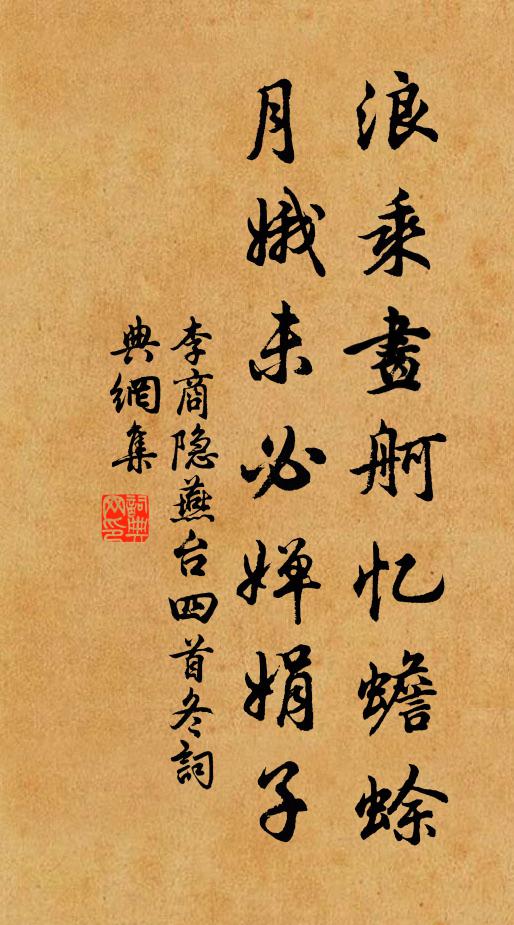 浪乘畫舸忆蟾蜍
月娥未必婵娟子
李商隐燕台四首冬詞
典網集
詞典
网印